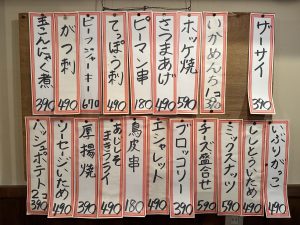 ザーサイ
390
いかめんち 1コ
390
ホッケ焼
590
さつまあげ
490
ピーマン串
180
てっぽう刺
490
ビーフジャーキー
690
がつ刺
490
玉こんにゃく煮
390
いぶりがっこ
490
ししとういため
490
ミックスナッツ
390
チーズ盛合せ
590
ブロッコリー
390
エシャレット
490
鳥皮串
180
あじしそまきフライ
490
厚揚焼
390
ソーセージいため
490
ハッシュポテト 2コ
390